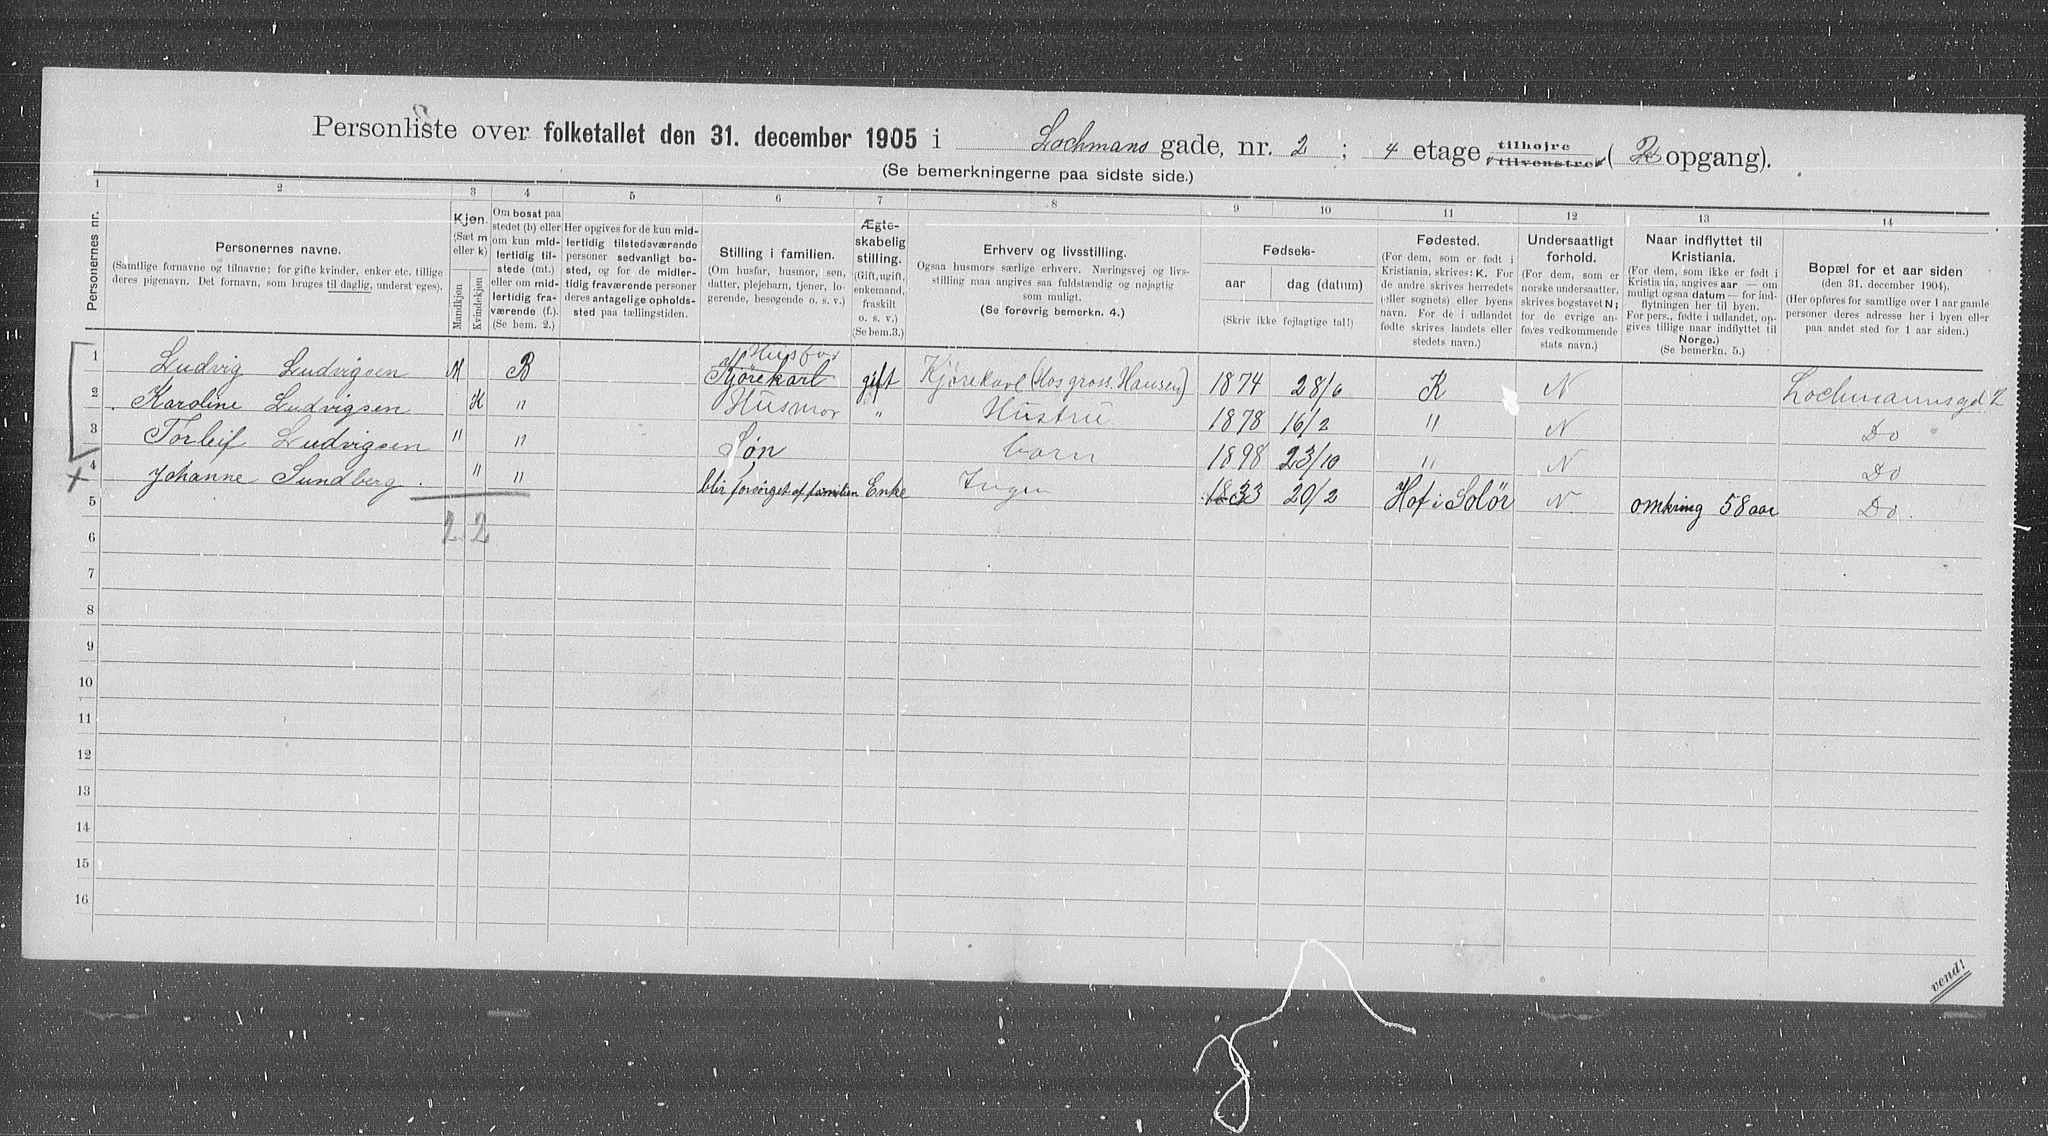 Personliste over folketallet den 31. december 1905 i Lochmans gade, nr. 2 ; 4 etage tilhøjre tilvenstre ( opgang).
(Se bemerkningerne paa sidste side.)
1 2 3 4 5 6 7 8 9 10 11 12 13 14
Personernes nr.
Personernes navne.
(Samtlige fornavne og tilnavne; for gifte kvinder, enker etc. tillige
deres pigenavn. Det fornavn, som bruges til daglig, understreges).
Kjøn.
(Sæt m
eller k)
Mandkjøn
Kvindekjøn
Om bosat paa
stedet (b) eller
om kun mid-
lertidig til-
stede (mt.)
eller om mid-
lertidig fra-
værende (f.).
(Se bem. 2.)
Her opgives for de kun mid-
lertidig tilstedeværende
personer sedvanligt bo-
sted, og for de midler-
tidig fraværende personer
deres antagelige opholds-
sted paa tællingstiden.
Stilling i familien.
(Om husfar, husmor, søn,
datter, plejebarn, tjener, lo-
gerende, besøgende o. s. v.)
Ægte-
skabelig
stilling.
(Gift, ugift,
enkemand,
fraskilt
o. s. v.)
(Se bem.3.)
Erhverv og livsstilling.
Ogsaa husmors særlige erhverv. Næringsvej og livs-
stilling maa angives saa fuldstændig og nøjagtig
som muligt.
(Se forøvrig bemerkn. 4.)
Fødsels-
aar dag (datum)
(Skriv ikke fejlagtige tal!)
Fødested.
(For dem, som er født i
Kristiania, skrives: K. For
de andre skrives herredets
(eller sognets) eller byens
navn. For de i udlandet
fødte skrives landets eller
stedets navn.)
Undersaatligt
forhold.
(For dem, som er
norske undersaatter,
skrives bogstavet N;
for de øvrige an-
føres vedkommende
stats navn.)
Naar indflyttet til
Kristiania.
(For dem, som ikke er født i
Kristiania, angives aar — om
muligt ogsaa datum — for ind-
flytningen her til byen.
For pers., fødte i udlandet, op-
gives tillige naar indflyttet til
Norge.)
(Se bemerkn. 5.)
Bopæl for et aar siden
(den 31. december 1904).
(Her opføres for samtlige over 1 aar gamle
personer deres adresse her i byen eller
paa andet sted for 1 aar siden.)
Husfar
1 Ludvig Ludvigsen M B Kjørekarl gift Kjørekarl (Hos gross. Hansen) 1874 28/6 K N Lochmannsgd 2
2 Karoline Ludvigsen K " Husmor " Hustru 1878 16/2 " N Do
3 Torleif Ludvigsen " " Søn barn 1898 23/10 " N Do
4 Johanne Sundberg. " " blir forsørget af familien Enke Ingen 1833 20/2 Hof i Solør N. omkring 58 aar Do.
5
2 2
6
7
8
9
10
11
12
13
14
15
16
vend!